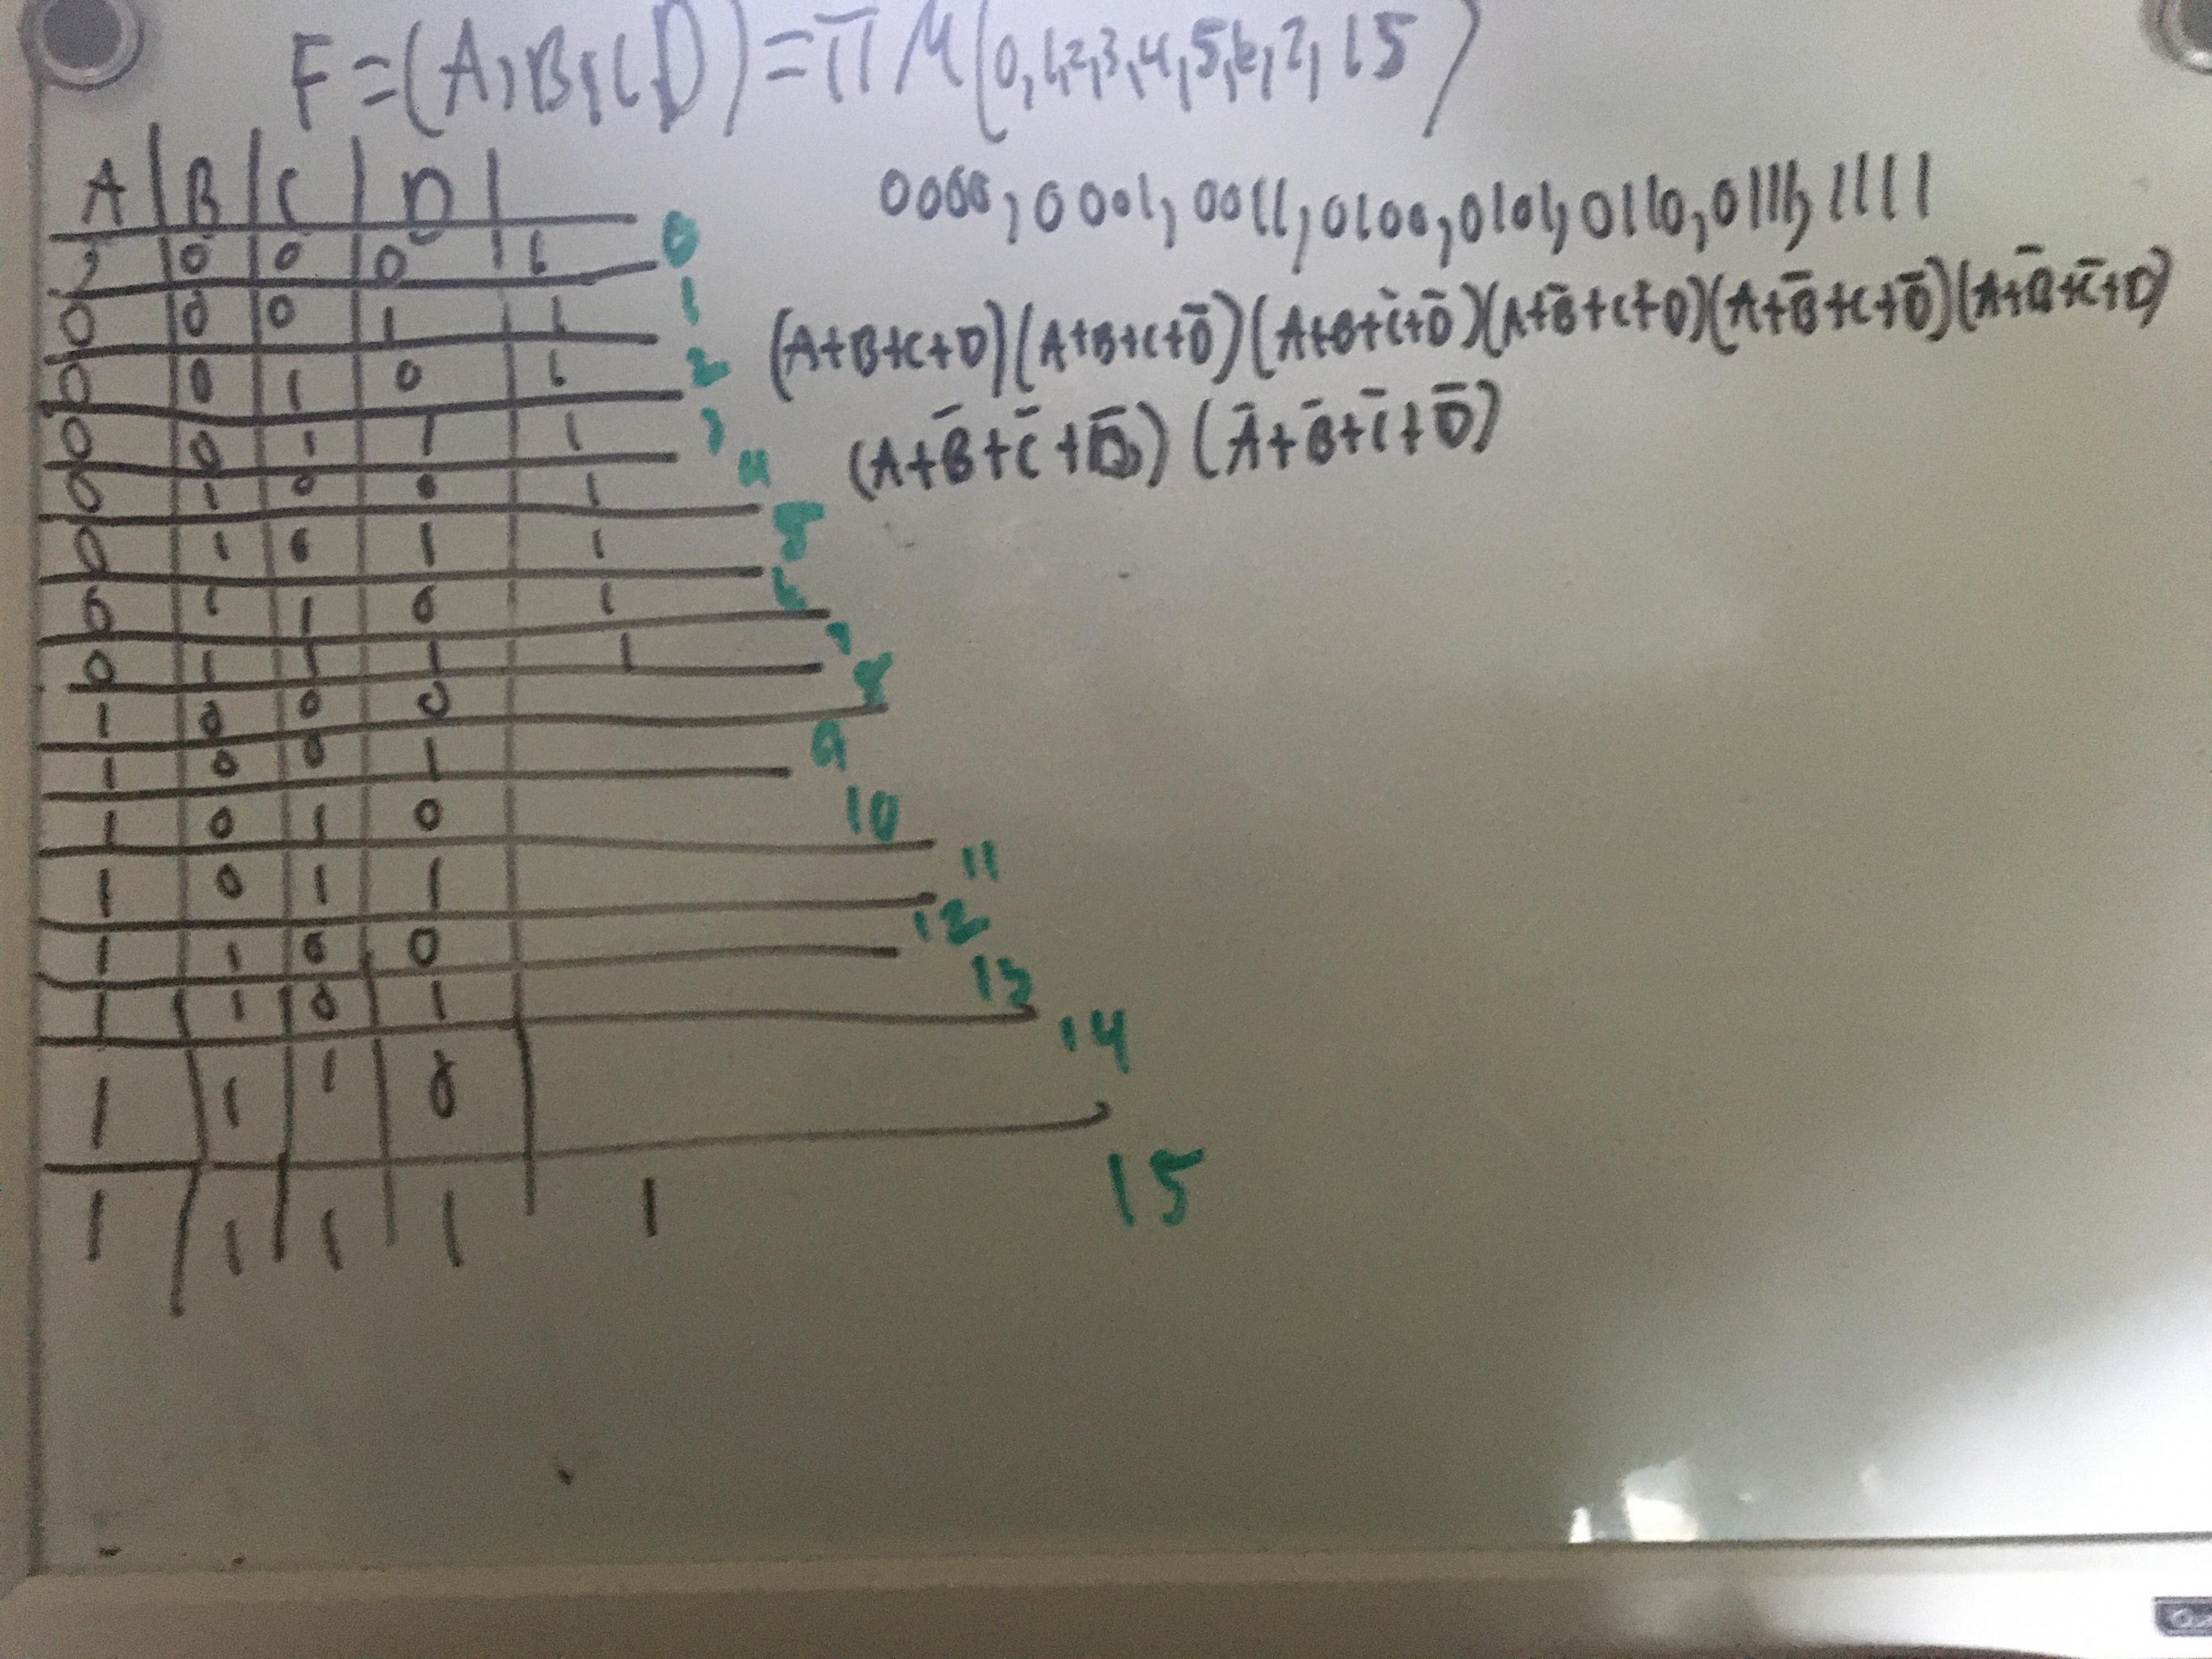 F=(A,B,C,D)=ΠM(0,1,2,3,4,5,6,7,15)
A|B|C|D|
0 0 0 1 0
0 0 0 1 1 1
0 0 1 0 1 2
0 0 1 1 1 3
0 1 0 0 1 4
0 1 0 1 1 5
0 1 1 0 1 6
0 1 1 1 1 7
1 0 0 0 8
1 0 0 1 9
1 0 1 0 10
1 0 1 1 11
1 1 0 0 12
1 1 0 1 13
1 1 1 0 14
1 1 1 1 1 15
0000,0001,0011,0100,0101,0110,0111,1111
(A+B+C+D)(A+B+C+D̄)(A+B+C̄+D̄)(A+B̄+C+D)(A+B̄+C+D̄)(A+B̄+C̄+D)
(A+B̄+C̄+D̄)(Ā+B̄+C̄+D̄)